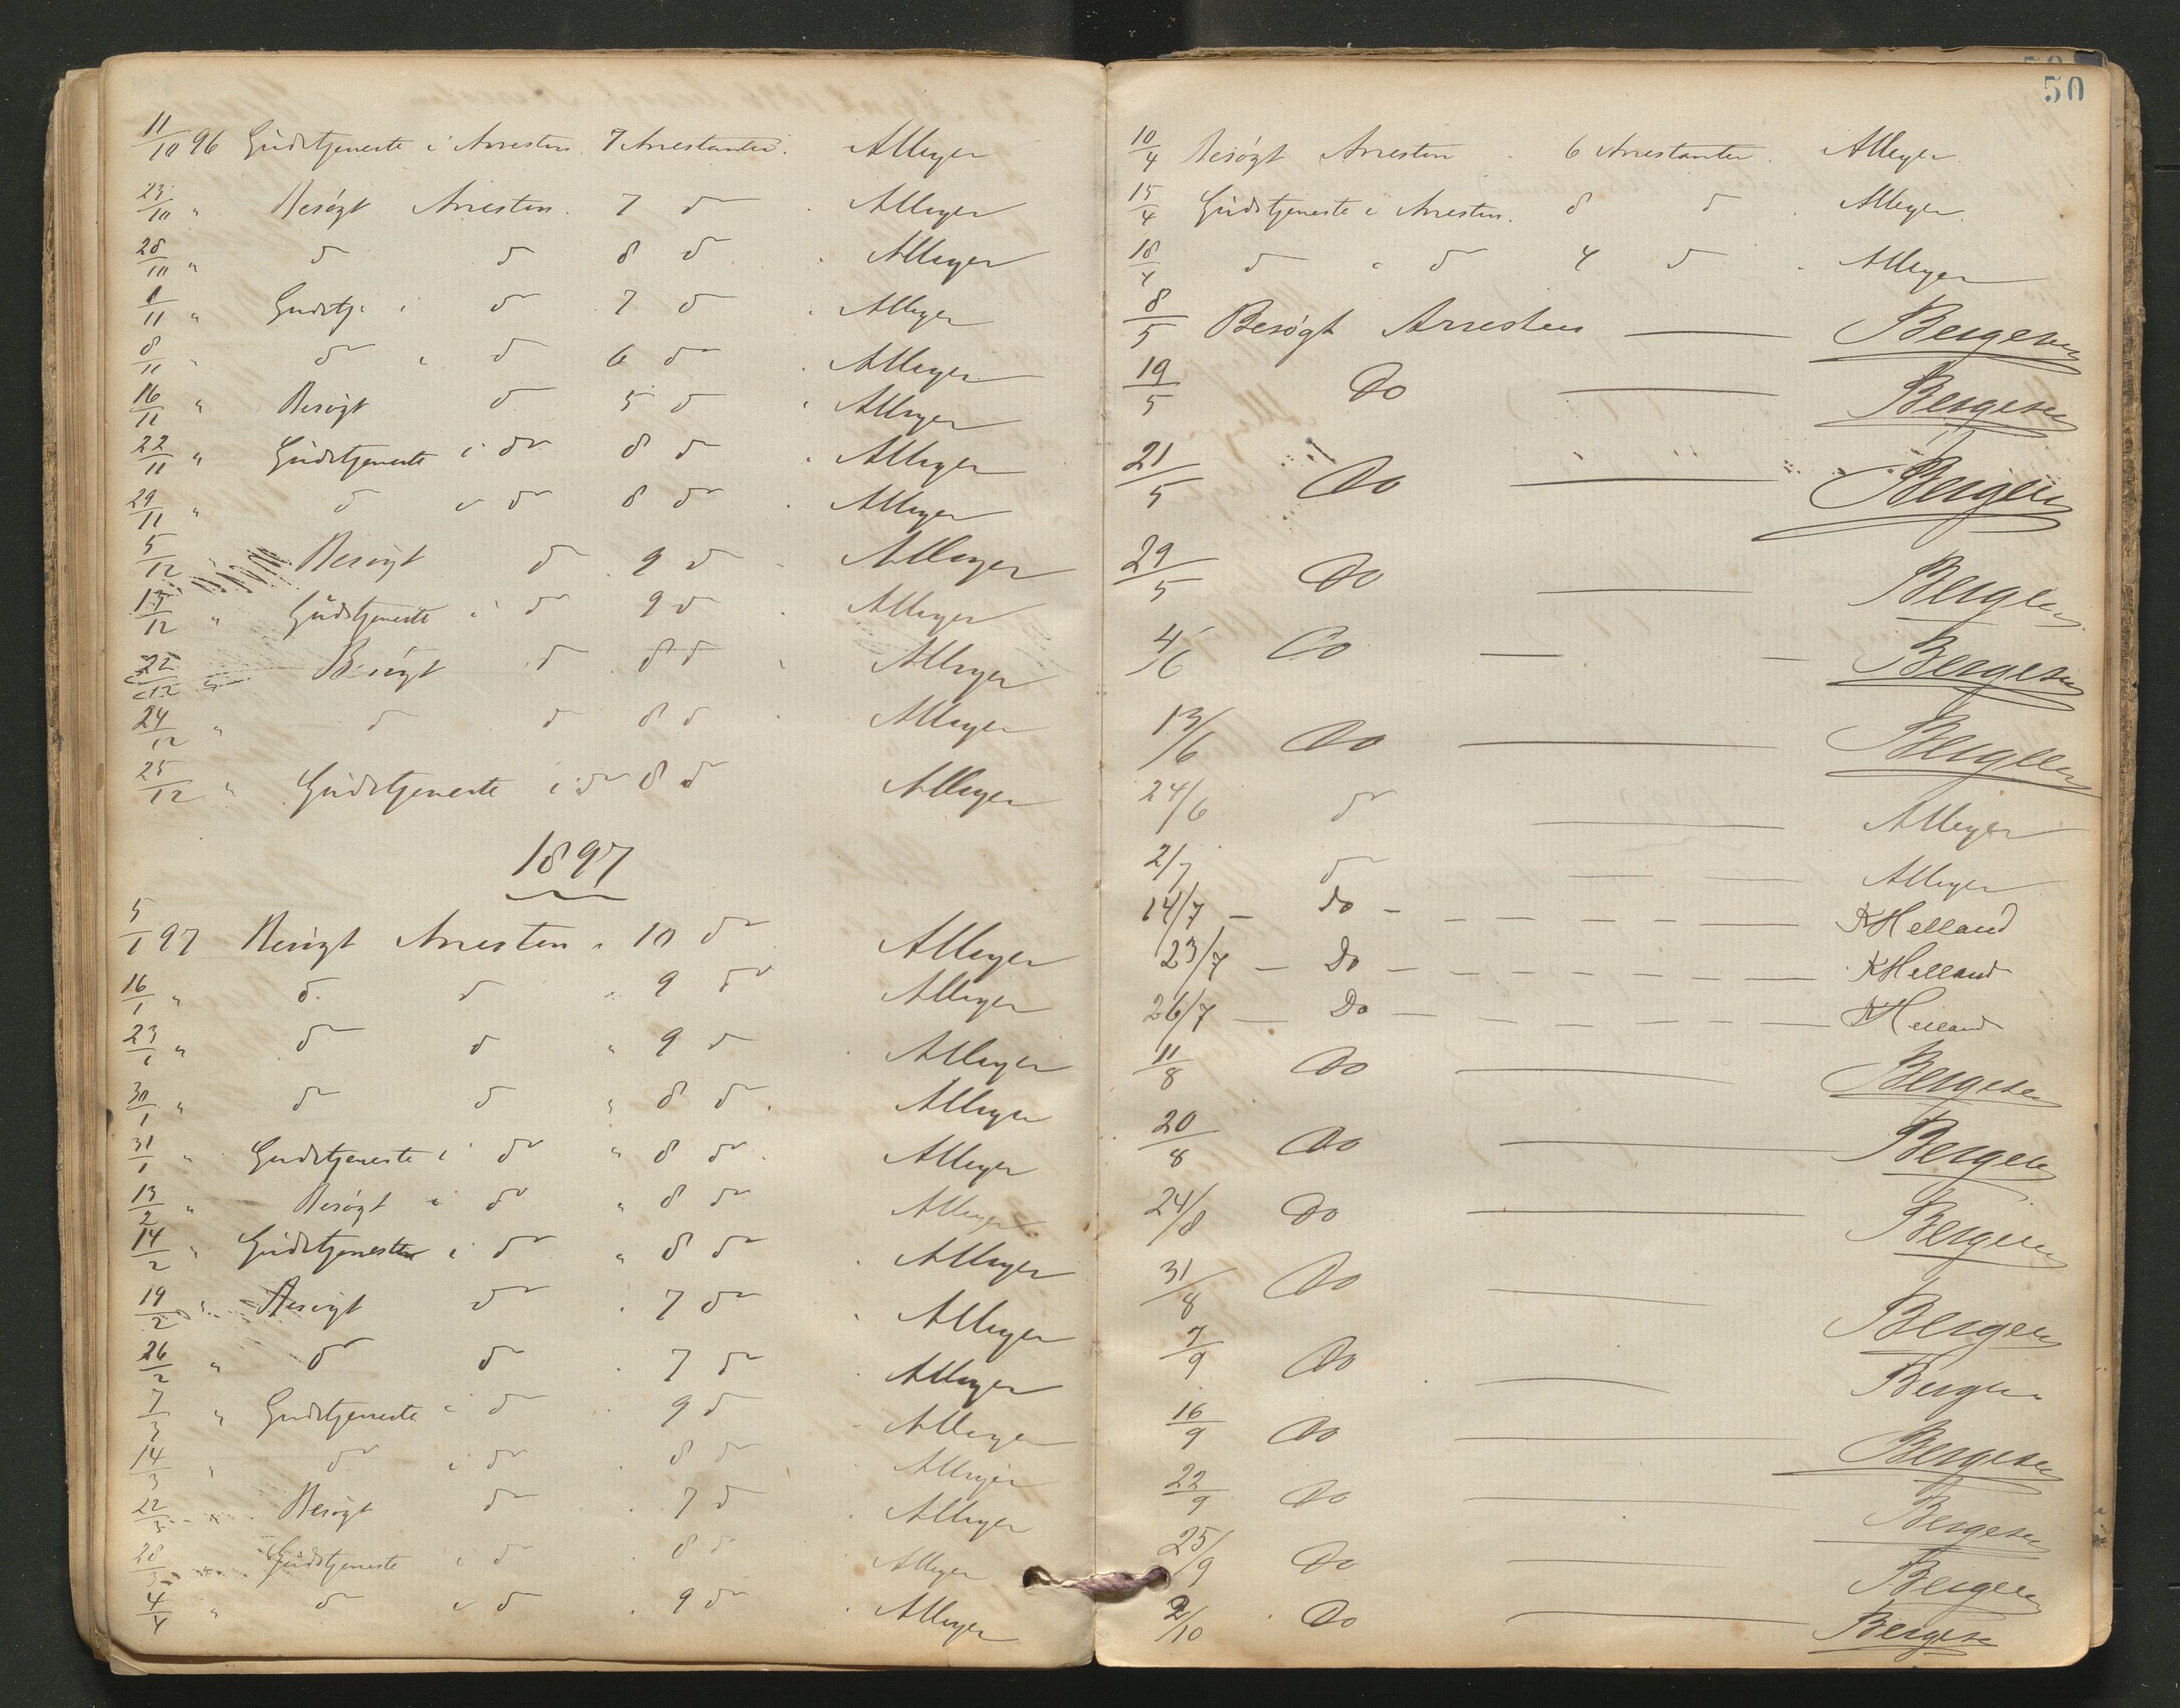 11/10 96 Gudstjeneste i Arresten. 7 Arrestanter. AMeyer
23/10 " Besøgt Arresten. 7 do AMeyer
28/10 " do do 8 do AMeyer
1/11 " Gudstj. i do 7 do AMeyer
8/11 " do i do 6 do AMeyer
16/11 " Besøgt do 5 do AMeyer
22/11 " Gudstjeneste i do 8 do AMeyer
29/11 " do i do 8 do AMeyer
5/12 Besøgt do 9 do AMeyer
13/12 " Gudstjeneste i do 9 do AMeyer
22/12 " Besøgt do 8 do AMeyer
24/12 " do do 8 do AMeyer
25/12 " Gudstjeneste i do 8 do AMeyer
1897
5/1 97 Besøgt Arresten " 10 do AMeyer
16/1 " do do " 9 do AMeyer
23/1 " do do " 9 do AMeyer
30/1 " do do " 8 do. AMeyer
31/1 " Gudstjeneste i do " 8 do. AMeyer
13/2 " Besøgt i do " 8 do AMeyer
14/2 " Gudstjeneste i do " 8 do AMeyer
19/2 " Besøgt do 7 do AMeyer
26/2 " do do 7 do AMeyer
7/3 " Gudstjeneste i do 9 do AMeyer
14/3 " do i do 8 do AMeyer
22/3 " Besøgt do 7 do AMeyer
28/3 " Gudstjeneste i do 8 do AMeyer
4/4 " do i do 9 do AMeyer
50
10/4 Besøgt Arresten 6 Arrestanter. AMeyer
15/4 Gudstjeneste i Arresten. 8 do AMeyer
18/4 do i do 4 do AMeyer
8/5 Besøgt Arresten — Bergesen
19/5 Do — Bergesen
21/5 Do — Bergesen
29/5 Do — Bergesen
4/6 Do — — Bergesen
13/6 Do — Bergesen
24/6 do — AMeyer
2/7 do — — AMeyer
14/7 — Do - - - - - - — KHelland
23/7 — Do - - - - - - — KHelland
26/7 — Do - - - - - - — KHelland
11/8 Do — Bergesen
20/8 Do — Bergesen
24/8 Do — Bergesen
31/8 Do — Bergesen
7/9 Do — Bergesen
16/9 Do — Bergesen
22/9 Do — Bergesen
25/9 Do — Bergesen
2/10 Do — Bergesen